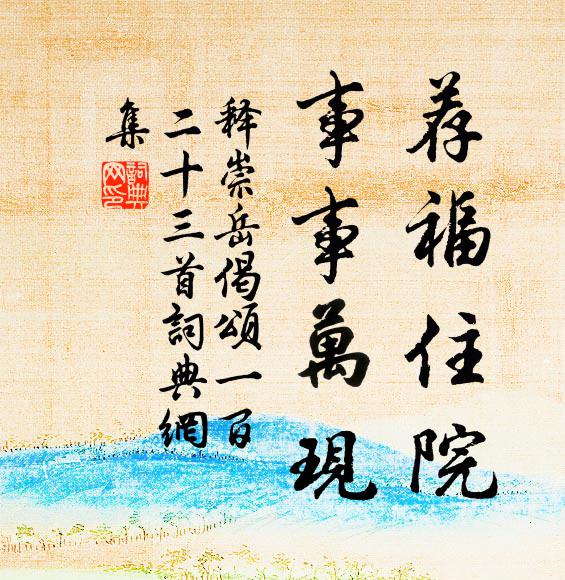 荐福住院
事事萬現
释崇岳偈頌一百
二十三首詞典網
集
詞典
网印